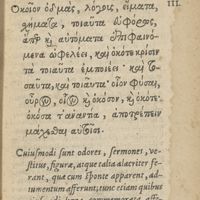 III.
Ὁκοῖον ὀδμαὶ, λόγοι, εἵματα,
χήματα, τοιαῦτα
αὐτόματα ἐπιφαινό-
μενα ὠφελέει, καὶ ὁκότε κρίσιν
τὰ τοιαῦτα ἐμποιέει· καὶ το-
σαῦτα, καὶ τοιαῦτα οἷον φῦσαι,
ὁκόσον, καὶ ὁκότε·
ὁκόσα τἀναντία, ἀποτρέπειν
μάχεσθαι αὐτοῖσι.
Cuiusmodi sunt odores, sermones, ve-
stitus, figuræ, atque talia alacriter fe-
rant, quæ cum sponte apparent, ad-
iumentum afferunt: tunc etiam quibus